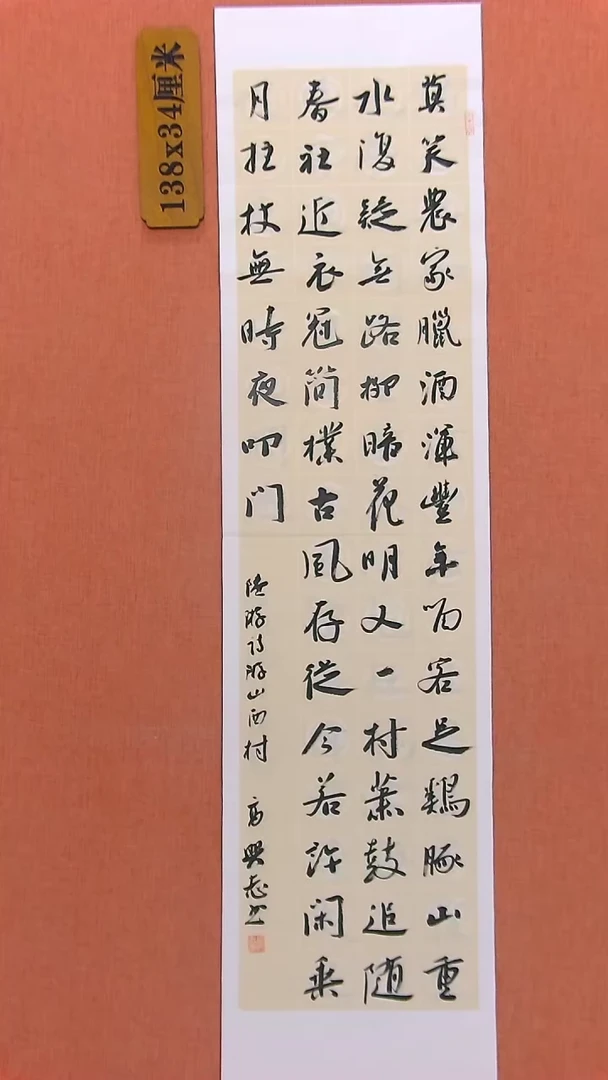 138x34厘米
莫笑農家臘酒渾豐年留客足鷄豚山重
水復疑无路柳暗花明又一村蕭鼓追随
春社近衣冠简樸古風存從今若許闲乘
月拄杖無時夜叩门
陸游詩游山西村
高興志书